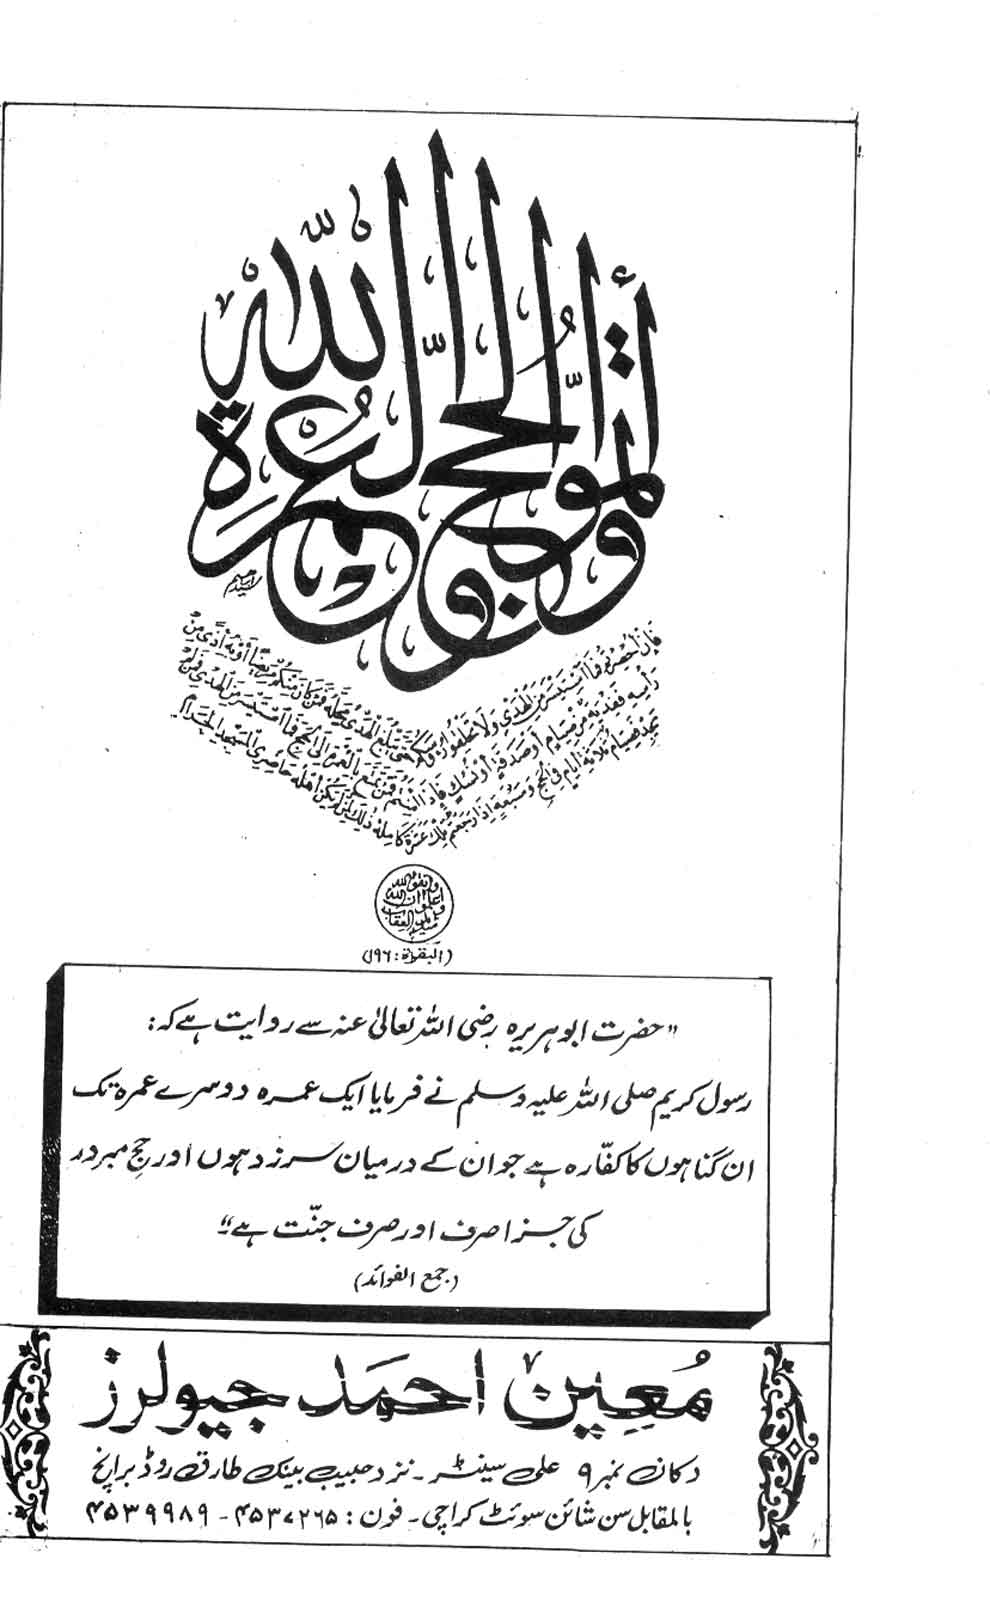 وأتموا الحج والعمرة لله
فَإِنْ أُحْصِرْتُمْ فَمَا اسْتَيْسَرَ مِنَ الْهَدْيِ وَلَا تَحْلِقُوا رُءُوسَكُمْ حَتَّى يَبْلُغَ الْهَدْيُ مَحِلَّهُ فَمَنْ كَانَ مِنْكُمْ مَرِيضًا أَوْ بِهِ أَذًى مِنْ
رَأْسِهِ فَفِدْيَةٌ مِنْ صِيَامٍ أَوْ صَدَقَةٍ أَوْ نُسُكٍ فَإِذَا أَمِنْتُمْ فَمَنْ تَمَتَّعَ بِالْعُمْرَةِ إِلَى الْحَجِّ فَمَا اسْتَيْسَرَ مِنَ الْهَدْيِ فَمَنْ لَمْ
يَجِدْ فَصِيَامُ ثَلَاثَةِ أَيَّامٍ فِي الْحَجِّ وَسَبْعَةٍ إِذَا رَجَعْتُمْ تِلْكَ عَشَرَةٌ كَامِلَةٌ ذَلِكَ لِمَنْ لَمْ يَكُنْ أَهْلُهُ حَاضِرِي الْمَسْجِدِ الْحَرَامِ
واتقوا الله
واعلموا ان الله
شديد العقاب
(البقرة: ۱۹۶)
"حضرت ابوہریرہ رضی اللہ تعالیٰ عنہ سے روایت ہے کہ:
رسول کریم صلی اللہ علیہ وسلم نے فرمایا ایک عمرہ دوسرے عمرہ تک
ان گناہوں کا کفّارہ ہے جو ان کے درمیان سرزد ہوں اور حجِ مبرور
کی جزا صرف اور صرف جنّت ہے"
(جمع الفوائد)
مُعین احمد جیولرز
دکان نمبر ۹ علی سینٹر۔ نزد حبیب بینک طارق روڈ برانچ
بالمقابل سن شائن سوئٹ کراچی۔ فون: ۴۵۳۷۲۶۵ - ۴۵۳۹۹۸۹